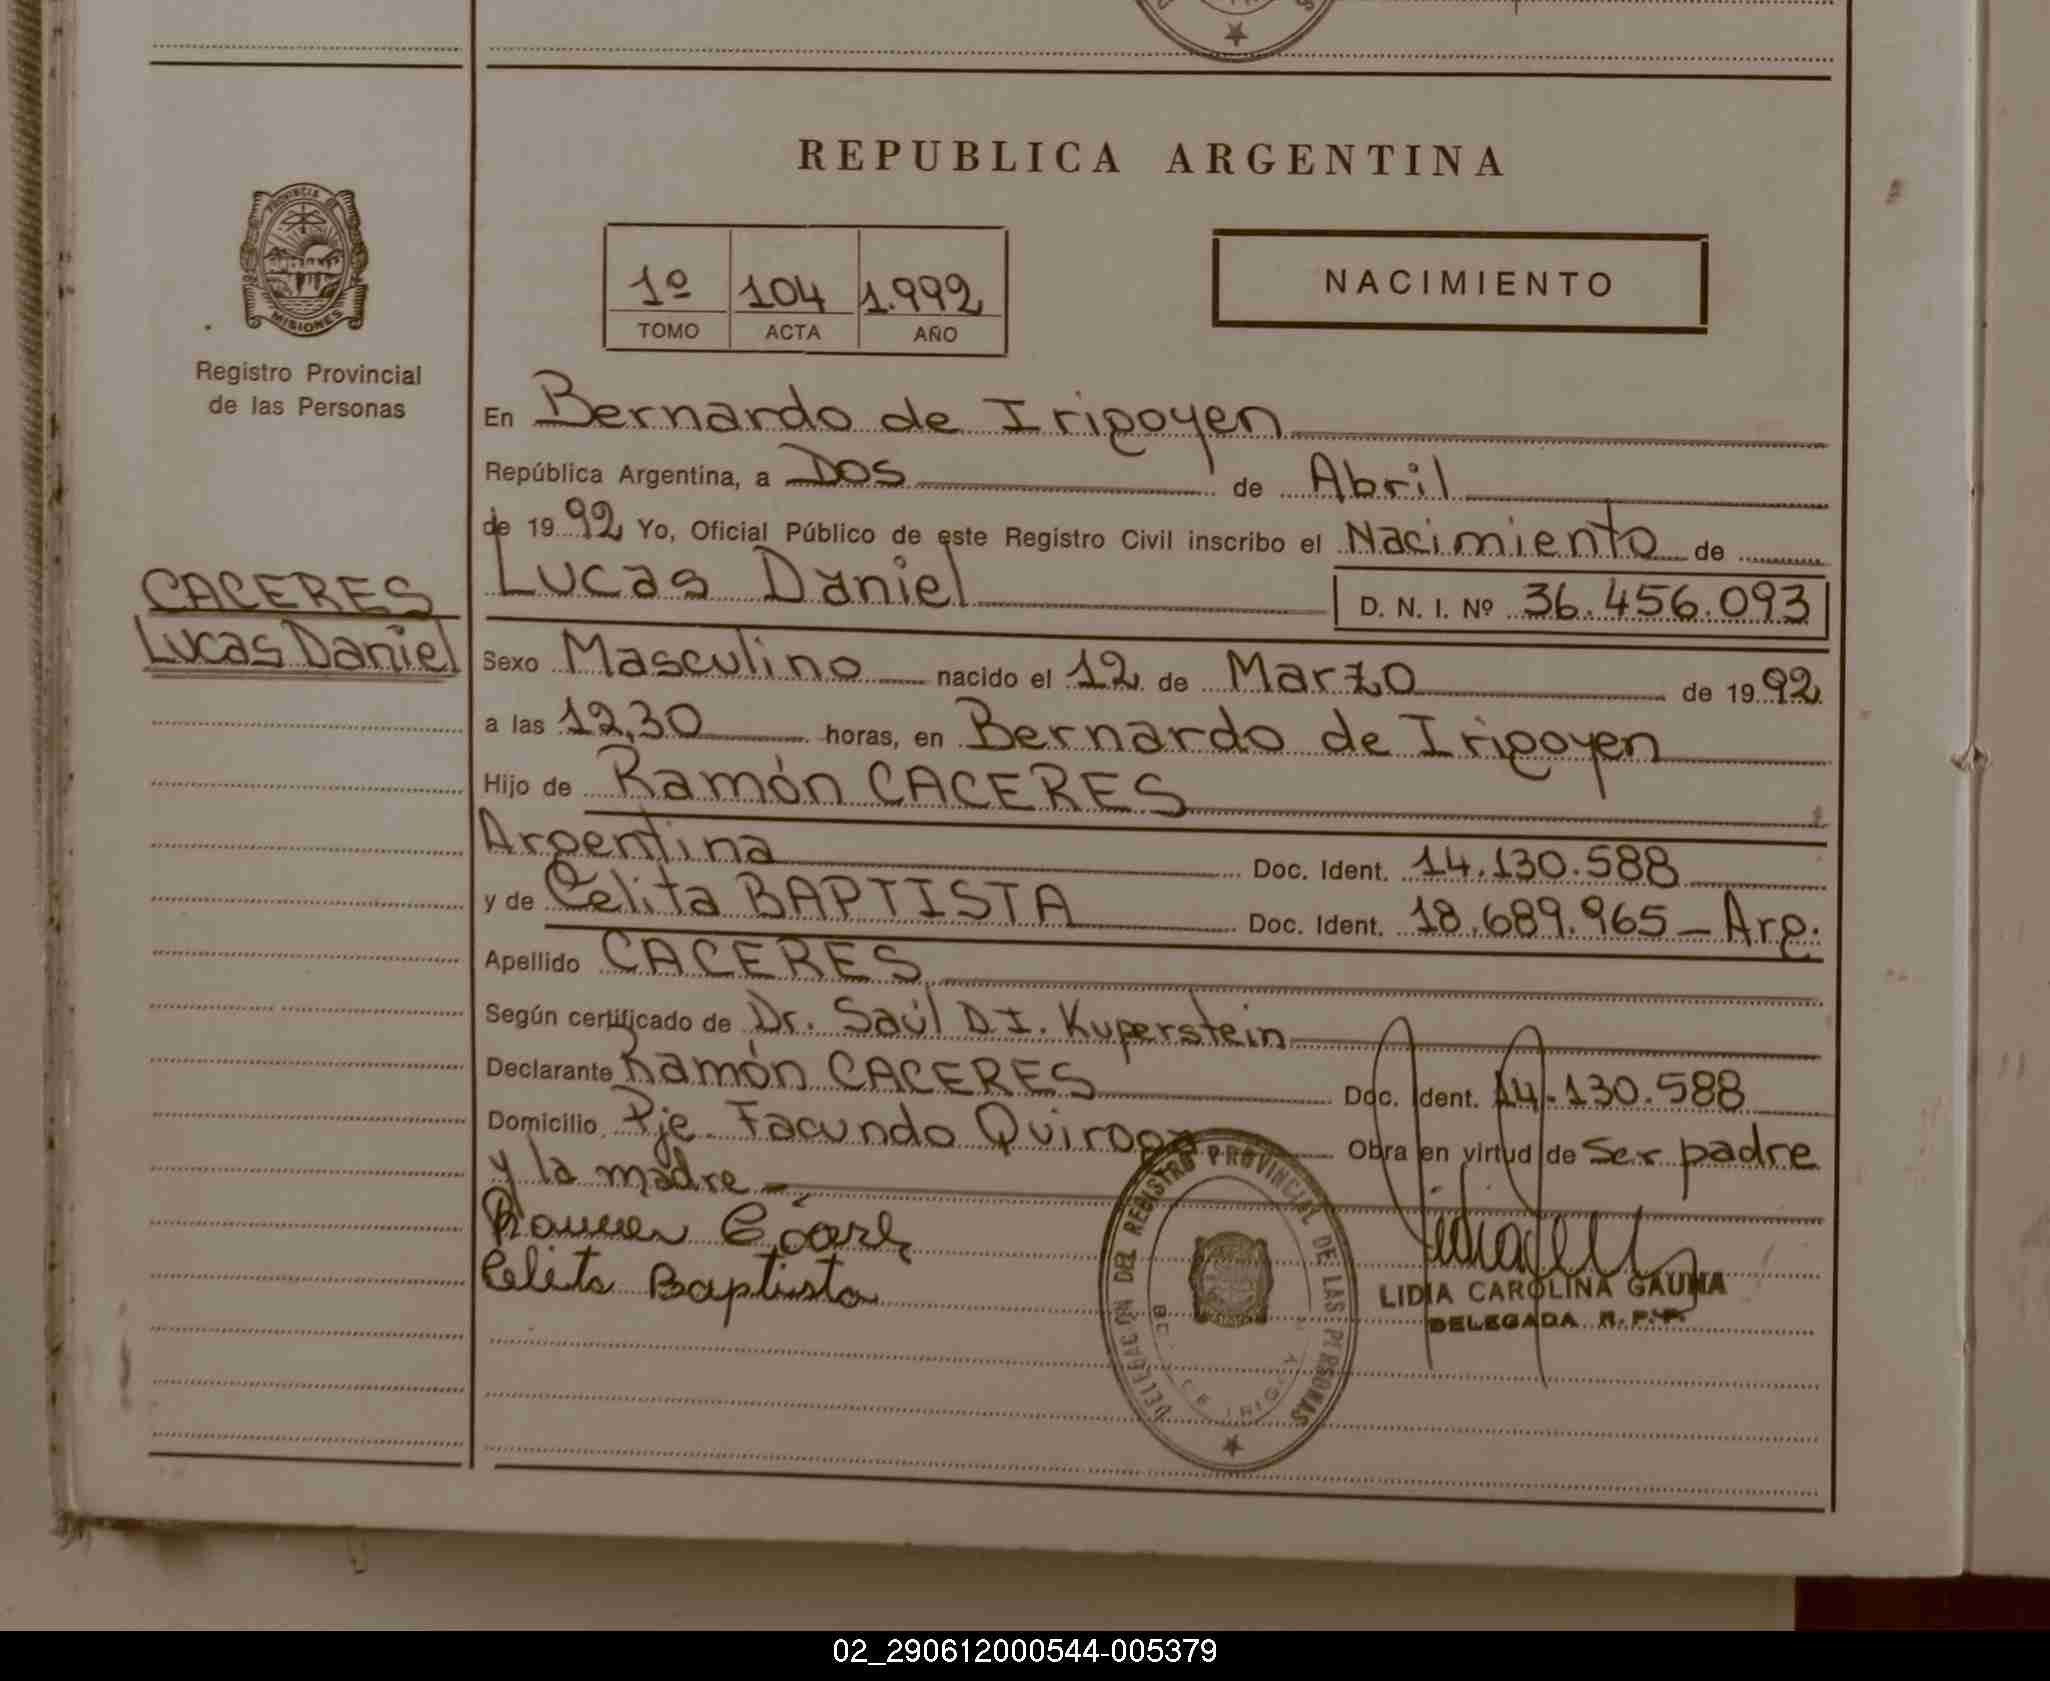 REPUBLICA ARGENTINA
PROVINCIA
MISIONES
Registro Provincial
de las Personas
CACERES
Lucas Daniel
1º 104 1.992
TOMO ACTA AÑO
NACIMIENTO
En Bernardo de Irigoyen
República Argentina, a Dos de Abril
de 1992 Yo, Oficial Público de este Registro Civil inscribo el Nacimiento de
Lucas Daniel D. N. I. Nº 36.456.093
Sexo Masculino nacido el 12 de Marzo de 1992
a las 12,30 horas, en Bernardo de Irigoyen
Hijo de Ramón CACERES
Argentina Doc. Ident. 14.130.588
y de Celita BAPTISTA Doc. Ident. 18.689.965 - Arg.
Apellido CACERES
Según certificado de Dr. Saúl D.I. Kuperstein
Declarante Ramón CACERES Doc. Ident. 14.130.588
Domicilio Pje. Facundo Quiroga Obra en virtud de ser padre
y la madre -
Celita Baptista
DELEGACION DEL REGISTRO PROVINCIAL DE LAS PERSONAS
LIDIA CAROLINA GAUNA
DELEGADA R.P.P.
02_290612000544-005379